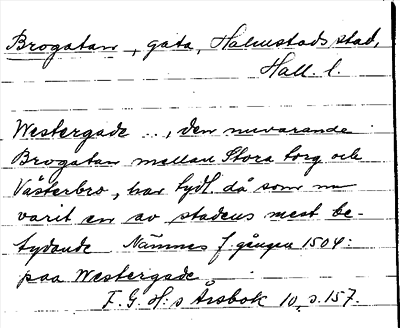 Brogatan, gata, Halmstads stad,
Hall. l.
Westergade ..., den nuvarande
Brogatan mellan Stora torg och
Västerbro, har tydl. då som nu
varit en av stadens mest be-
tydande Nämnes f. gången 1504:
paa Westergade.
F. G. H:s Årsbok 10, s. 157.